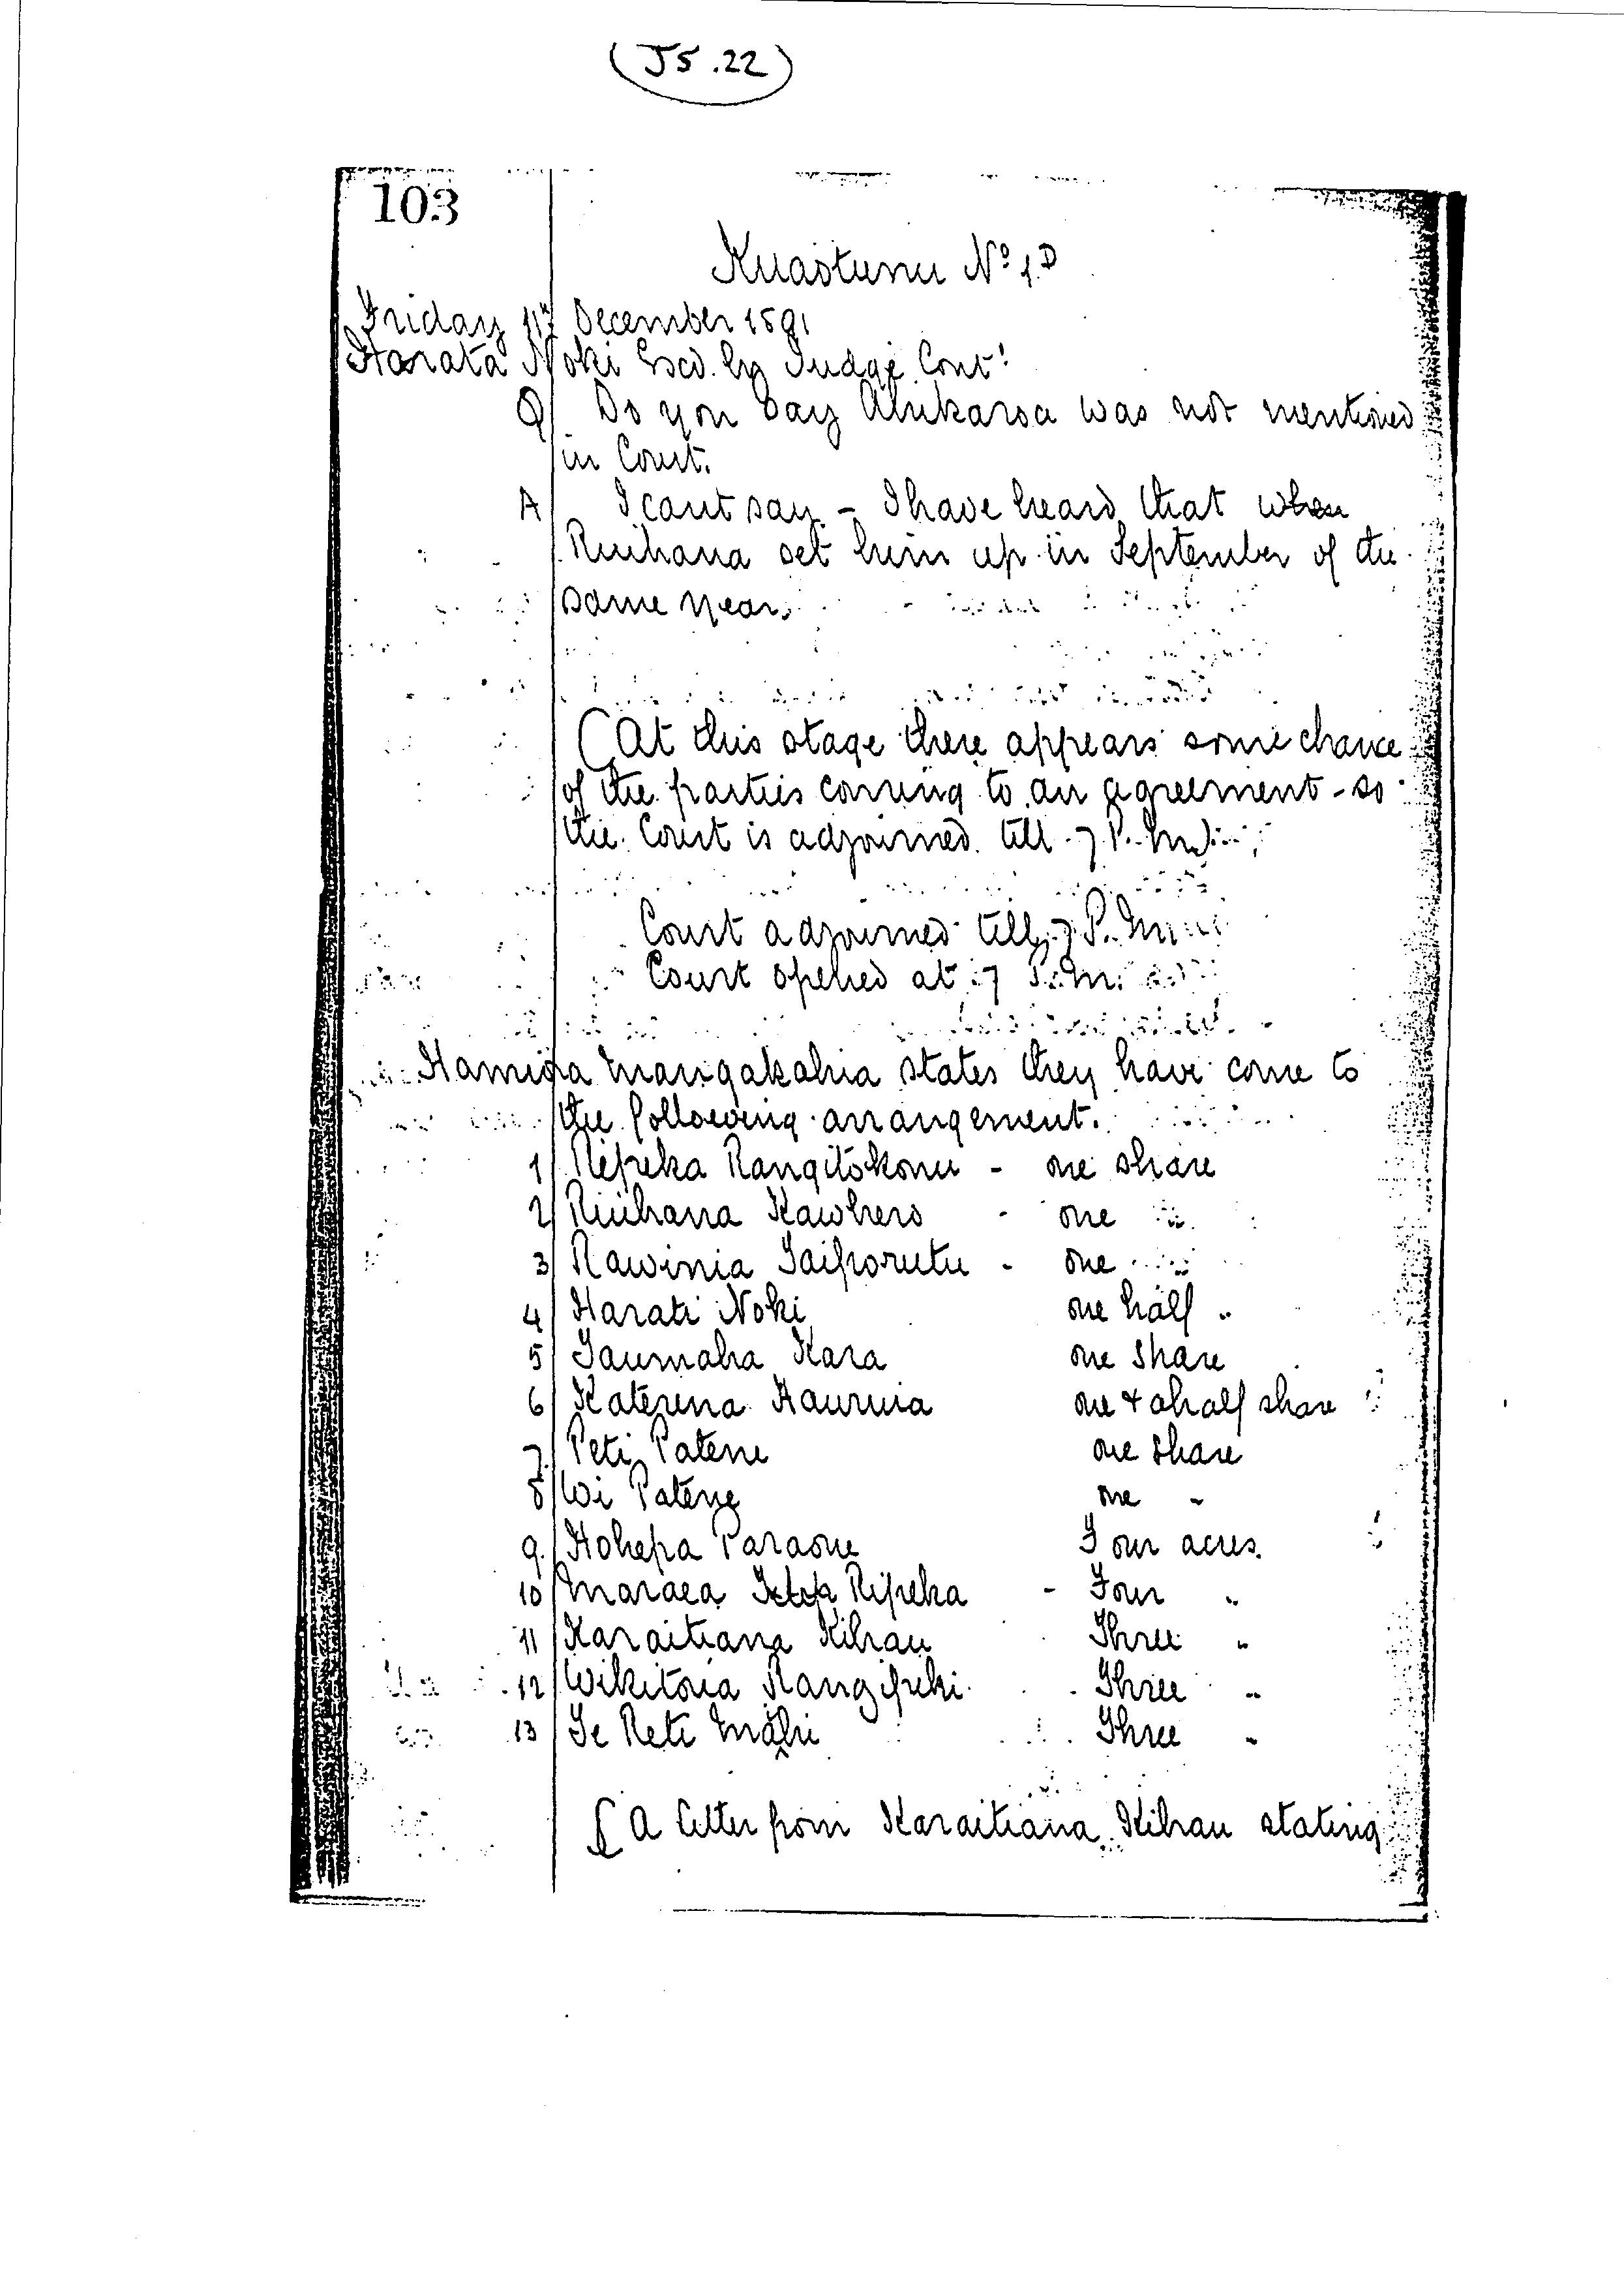 (J5.22)
103
Kuaotunu No 1D
Friday 11th December 1891
Harata Noki Exd. by Judge Contd
Q/ Do you say Ahikaroa was not mentioned
in Court.
A/ I cant say - I have heard that when
Ruihana set him up in September of the
same year.
(At this stage there appears some chance
of the parties coming to an agreement - so
the Court is adjourned till 7 P.M.)
Court adjourned till 7 P.M.
Court opened at 7 P.M.
Hamiora Mangakahia states they have come to
the following arrangement.
1/ Ripeka Rangitokonu - one share
2/ Ruihana Kawhero - one "
3/ Rawinia Taiporutu - one "
4/ Harata Noki one half "
5/ Taumaha Kara one share
6/ Katerina Hauruia one & a half share
7/ Peti Patene one share
8/ Wi Patene one "
9/ Hohepa Paraone Four acres.
10/ Maraea Ripeka - Four "
11/ Karaitiana Kihau Three "
12/ Wikitoria Rangipiki Three "
13/ Te Reti Mahi Three "
[A letter from Karaitiana Kihau stating